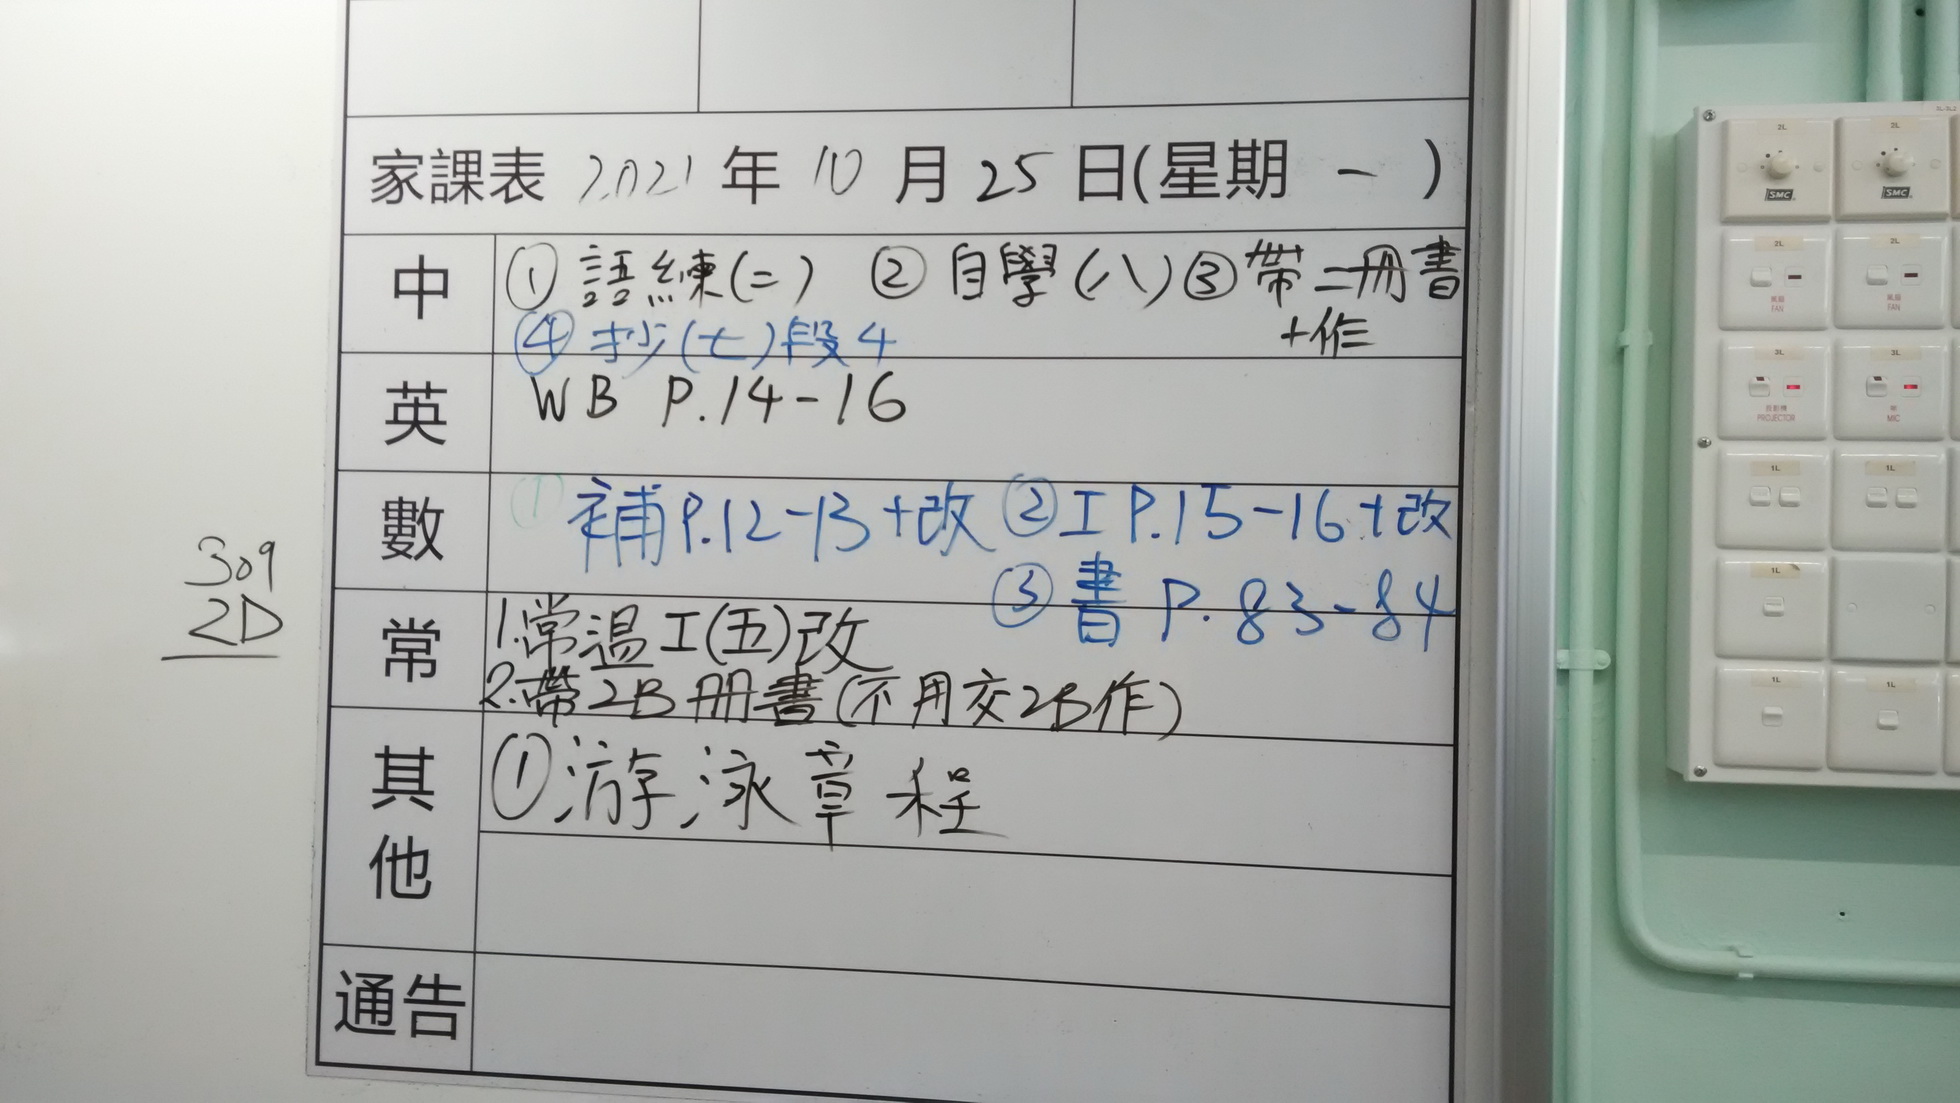 家課表 2021 年 10 月 25 日(星期 一 )
中 ① 語練(二) ② 自學(八) ③ 帶二冊書
+作
④ 抄(七)段4
英 WB P.14-16
數 ① 補P.12-13+改 ② I P.15-16+改
③ 書 P.83-84
常 1.常溫工(五)改
2.帶2B冊書(不用交2B作)
其他 ①游泳章程
通告
309
2D
2L 2L
SMC SMC
2L 2L
風扇 風扇
FAN FAN
3L 3L
投影機 咪
PROJECTOR MIC
1L 1L
1L
1L 1L